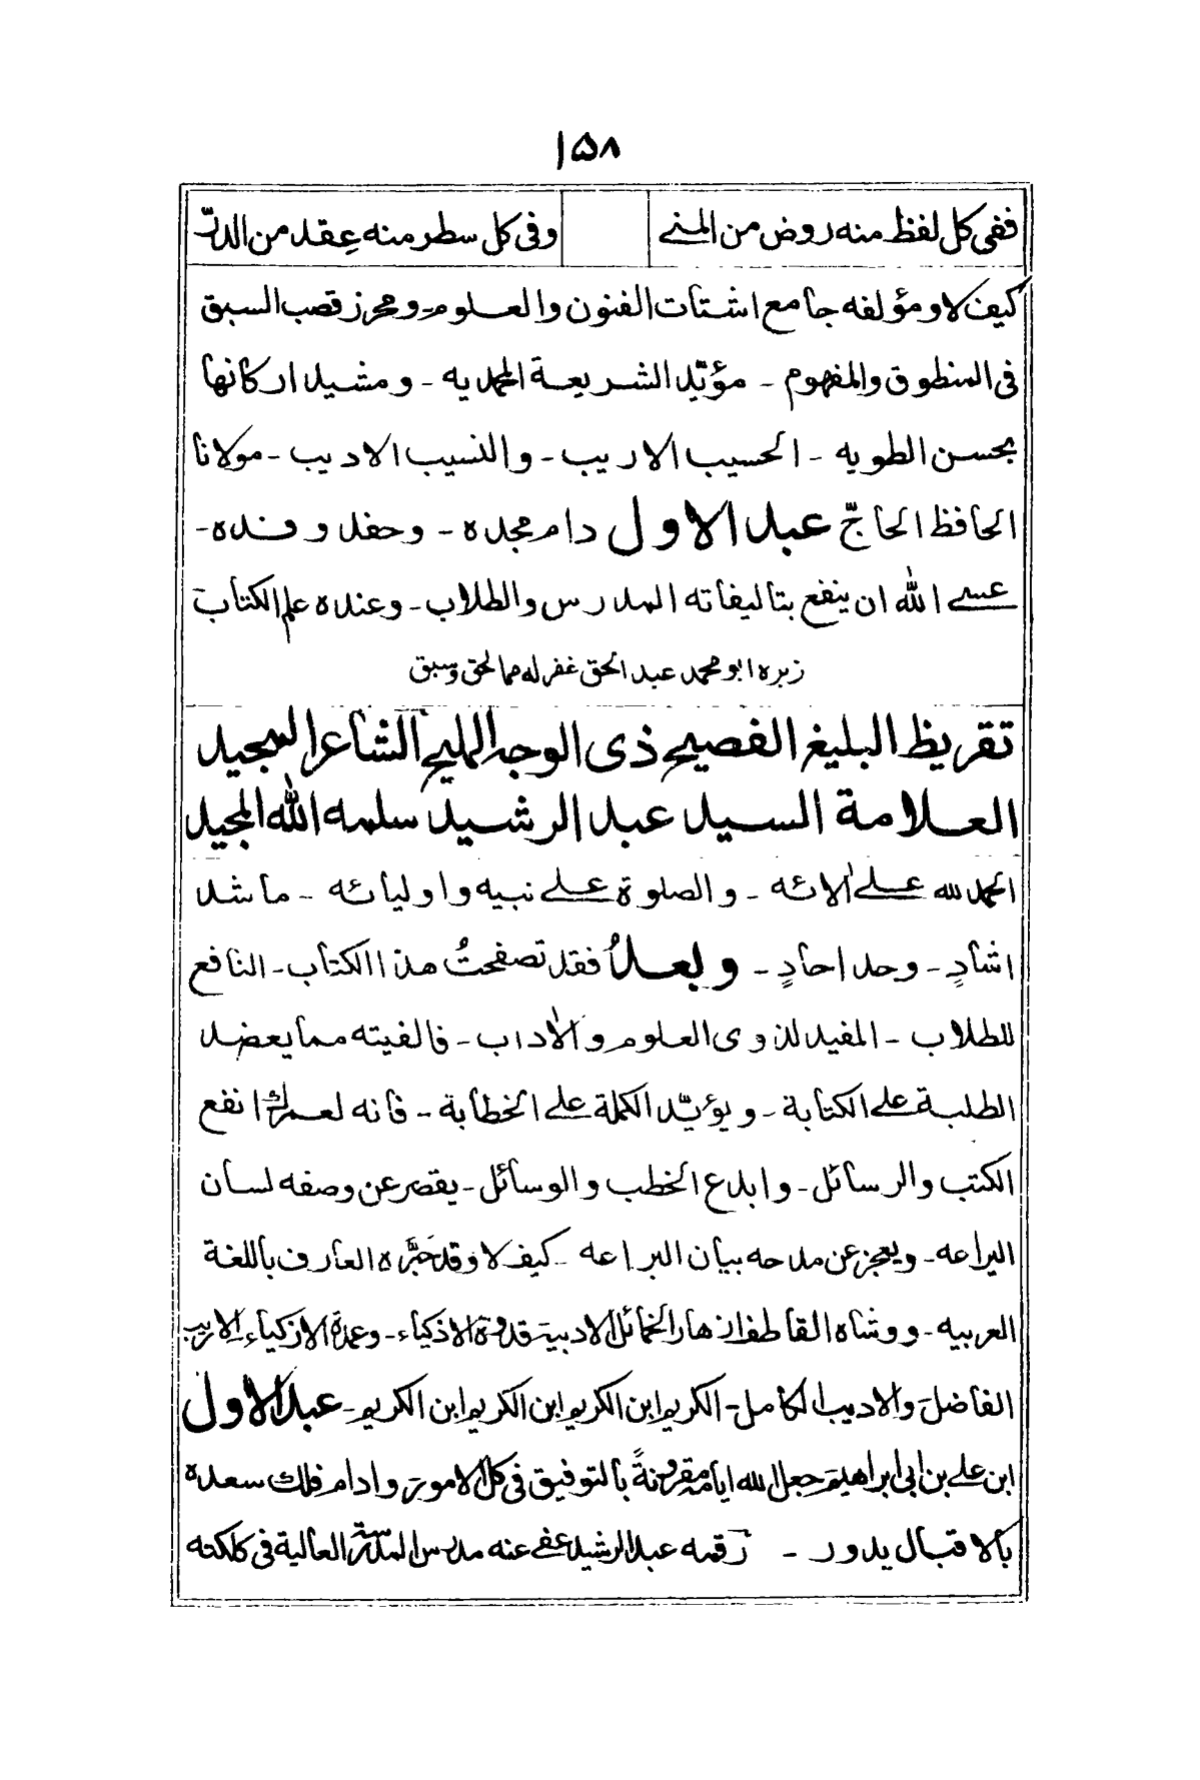 ۱۵۸
ففي كل لفظ منه روض من المنے وفي كل سطر منه عِقد من الدرّ
كيف لا ومؤلفه جامع اشتات الفنون والعلوم - ومحرز قصب السبق
فى المنطوق والمفهوم - مؤيّد الشريعة المحمديه - ومشيد اركانها
بحسن الطويه - الحسيب الاريب - والنسيب الاديب - مولانا
الحافظ الحاجّ عبد الاول دام مجده - وحفد وفده -
عسے الله ان ينفع بتاليفاته المدرس والطلاب - وعنده علم الكتاب
زبره ابو محمد عبد الحق غفر له مما لحق وسبق
تقريظ البليغ الفصيح ذى الوجه المليح الشاعر المجيد
العلامة السيد عبد الرشيد سلمه الله المجيد
الحمد لله علے اٰلائه - والصلوة علے نبيه واوليائه - ما شد
اشادٍ - وحد احادٍ - وبعدُ فقد تصفحتُ هذا الكتاب - النافع
للطلاب - المفيد لذوى العلوم والاٰداب - فالفيته مما يعضد
الطلبة علے الكتابة - ويؤيّد الكملة علے الخطابة - فانه لعمرك انفع
الكتب والرسائل - وابدع الخطب والوسائل - يقصر عن وصفه لسان
اليراعه - ويعجز عن مدحه بيان البراعه - كيف لا وقد حَبَّره العارف باللغة
العربيه - ووشاه القاطف ازهار الخمائل الادبية قدوة الاذكياء - وعمدة الازكياء الاريب
الفاضل والاديب الكامل - الكريم ابن الكريم ابن الكريم ابن الكريم - عبد الاول
ابن علے بن ابى ابراهيم جعل الله ايامه مقرونةً بالتوفيق فى كل الامور وادام فلك سعده
بالاقبال يدور - رقمه عبد الرشيد عفے عنه مدرس المدرسة العالية فى كلكته